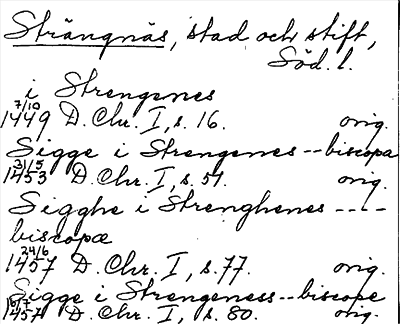 Strängnäs, stad och stift,
Söd. l.
i Strengenes
1449 7/10 D. Chr. I, s. 16. orig.
Sigge i Strengenes -- biscopa
1453 31/5 D. Chr. I, s. 51. orig.
Sigghe i Strenghenes ----
biscopæ
1457 24/6 D. Chr. I, s. 77. orig.
Sigge i Strengeness -- biscope
1457 D. Chr. I, s. 80. orig.